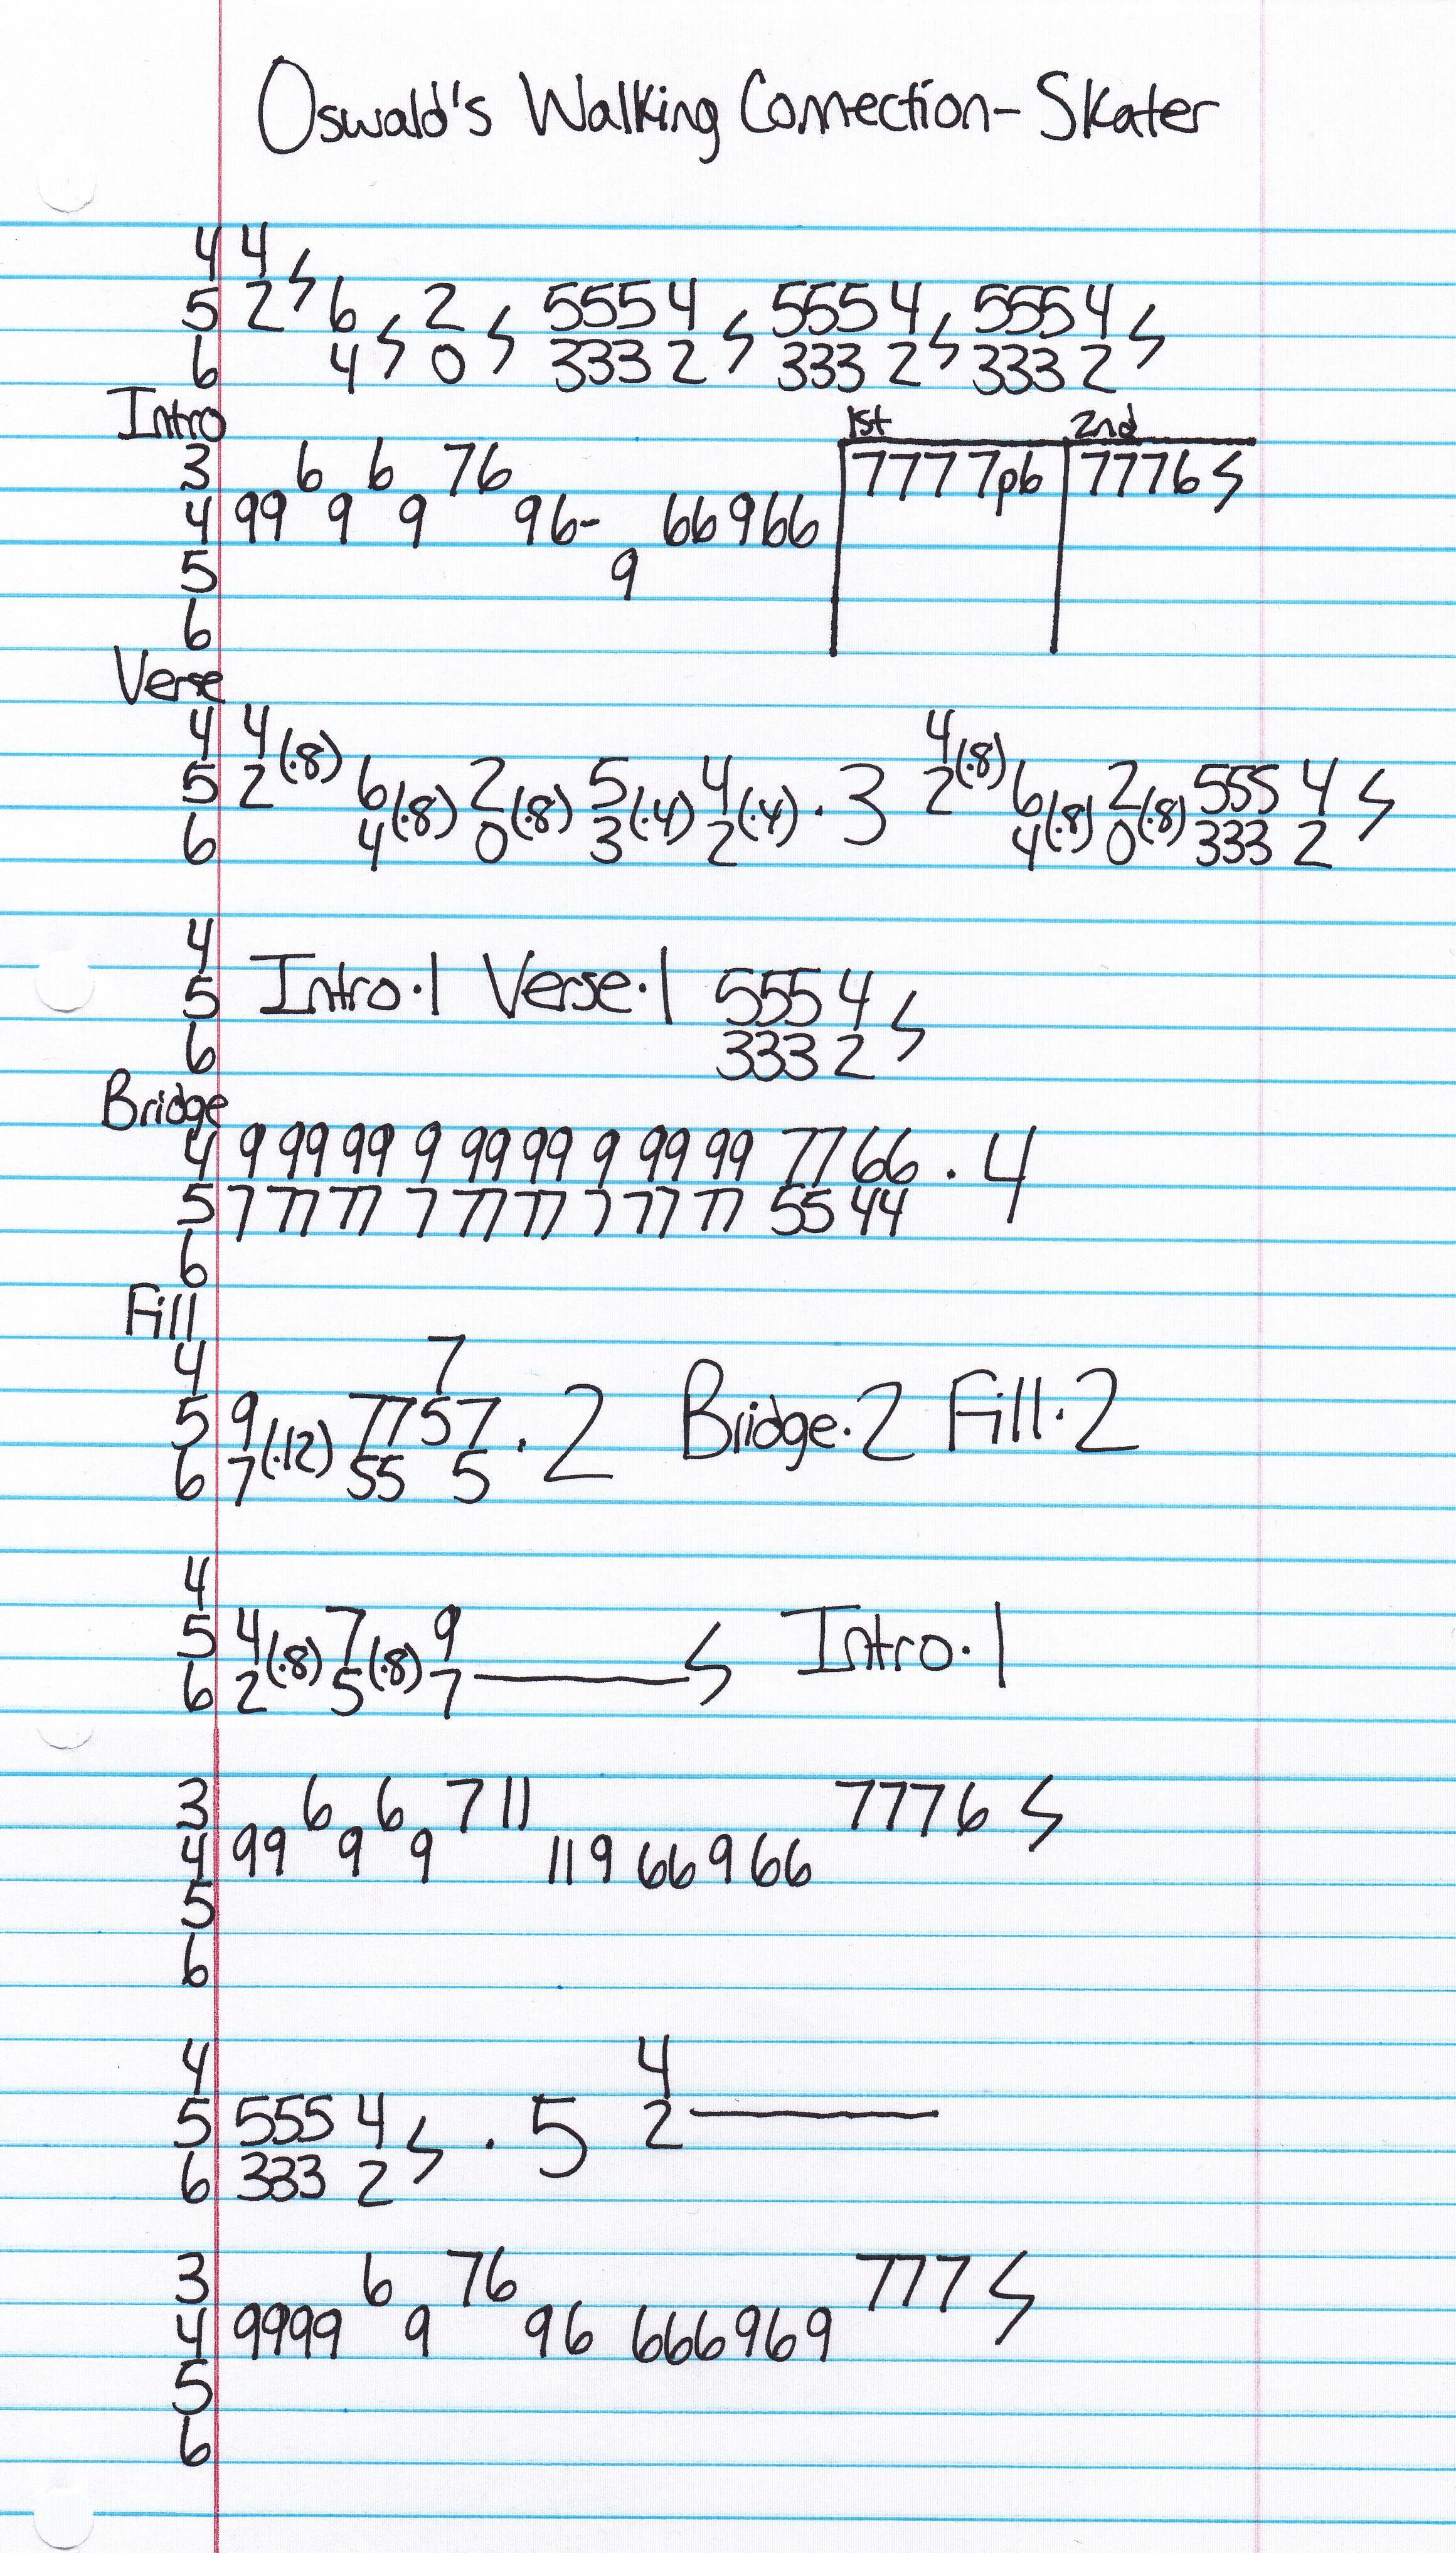 Oswald's Walking Connection- Skater
4 4
5 2 6 2 5554 5554 5554
6 4 0 333 2 333 2 333 2
Intro 1st 2nd
3 6 6 76 7777p6 7776
4 99 9 9 96- 66966
5 9
6
Verse
4 4(·8) 4(·8)
5 2 6(·8) 2(·8) 5(·4) 4(·4) · 3 2 6(·8) 2(·8) 555 4
6 4 0 3 2 4 0 333 2
4
5 Intro·1 Verse·1 555 4
6 333 2
Bridge
4 9 99 99 9 99 99 9 99 99 77 66 · 4
5 7 77 77 7 77 77 7 77 77 55 44
6
Fill
4 7
5 9(·12) 7757 · 2 Bridge·2 Fill·2
6 7 55 5
4
5 4(·8) 7(·8) 9 Intro·1
6 2 5 7
3 6 6 7 11 7776
4 99 9 9 11 9 66 9 66
5
6
4 4
5 555 4 · 5 2
6 333 2
3 6 76 777
4 9999 9 96 666969
5
6